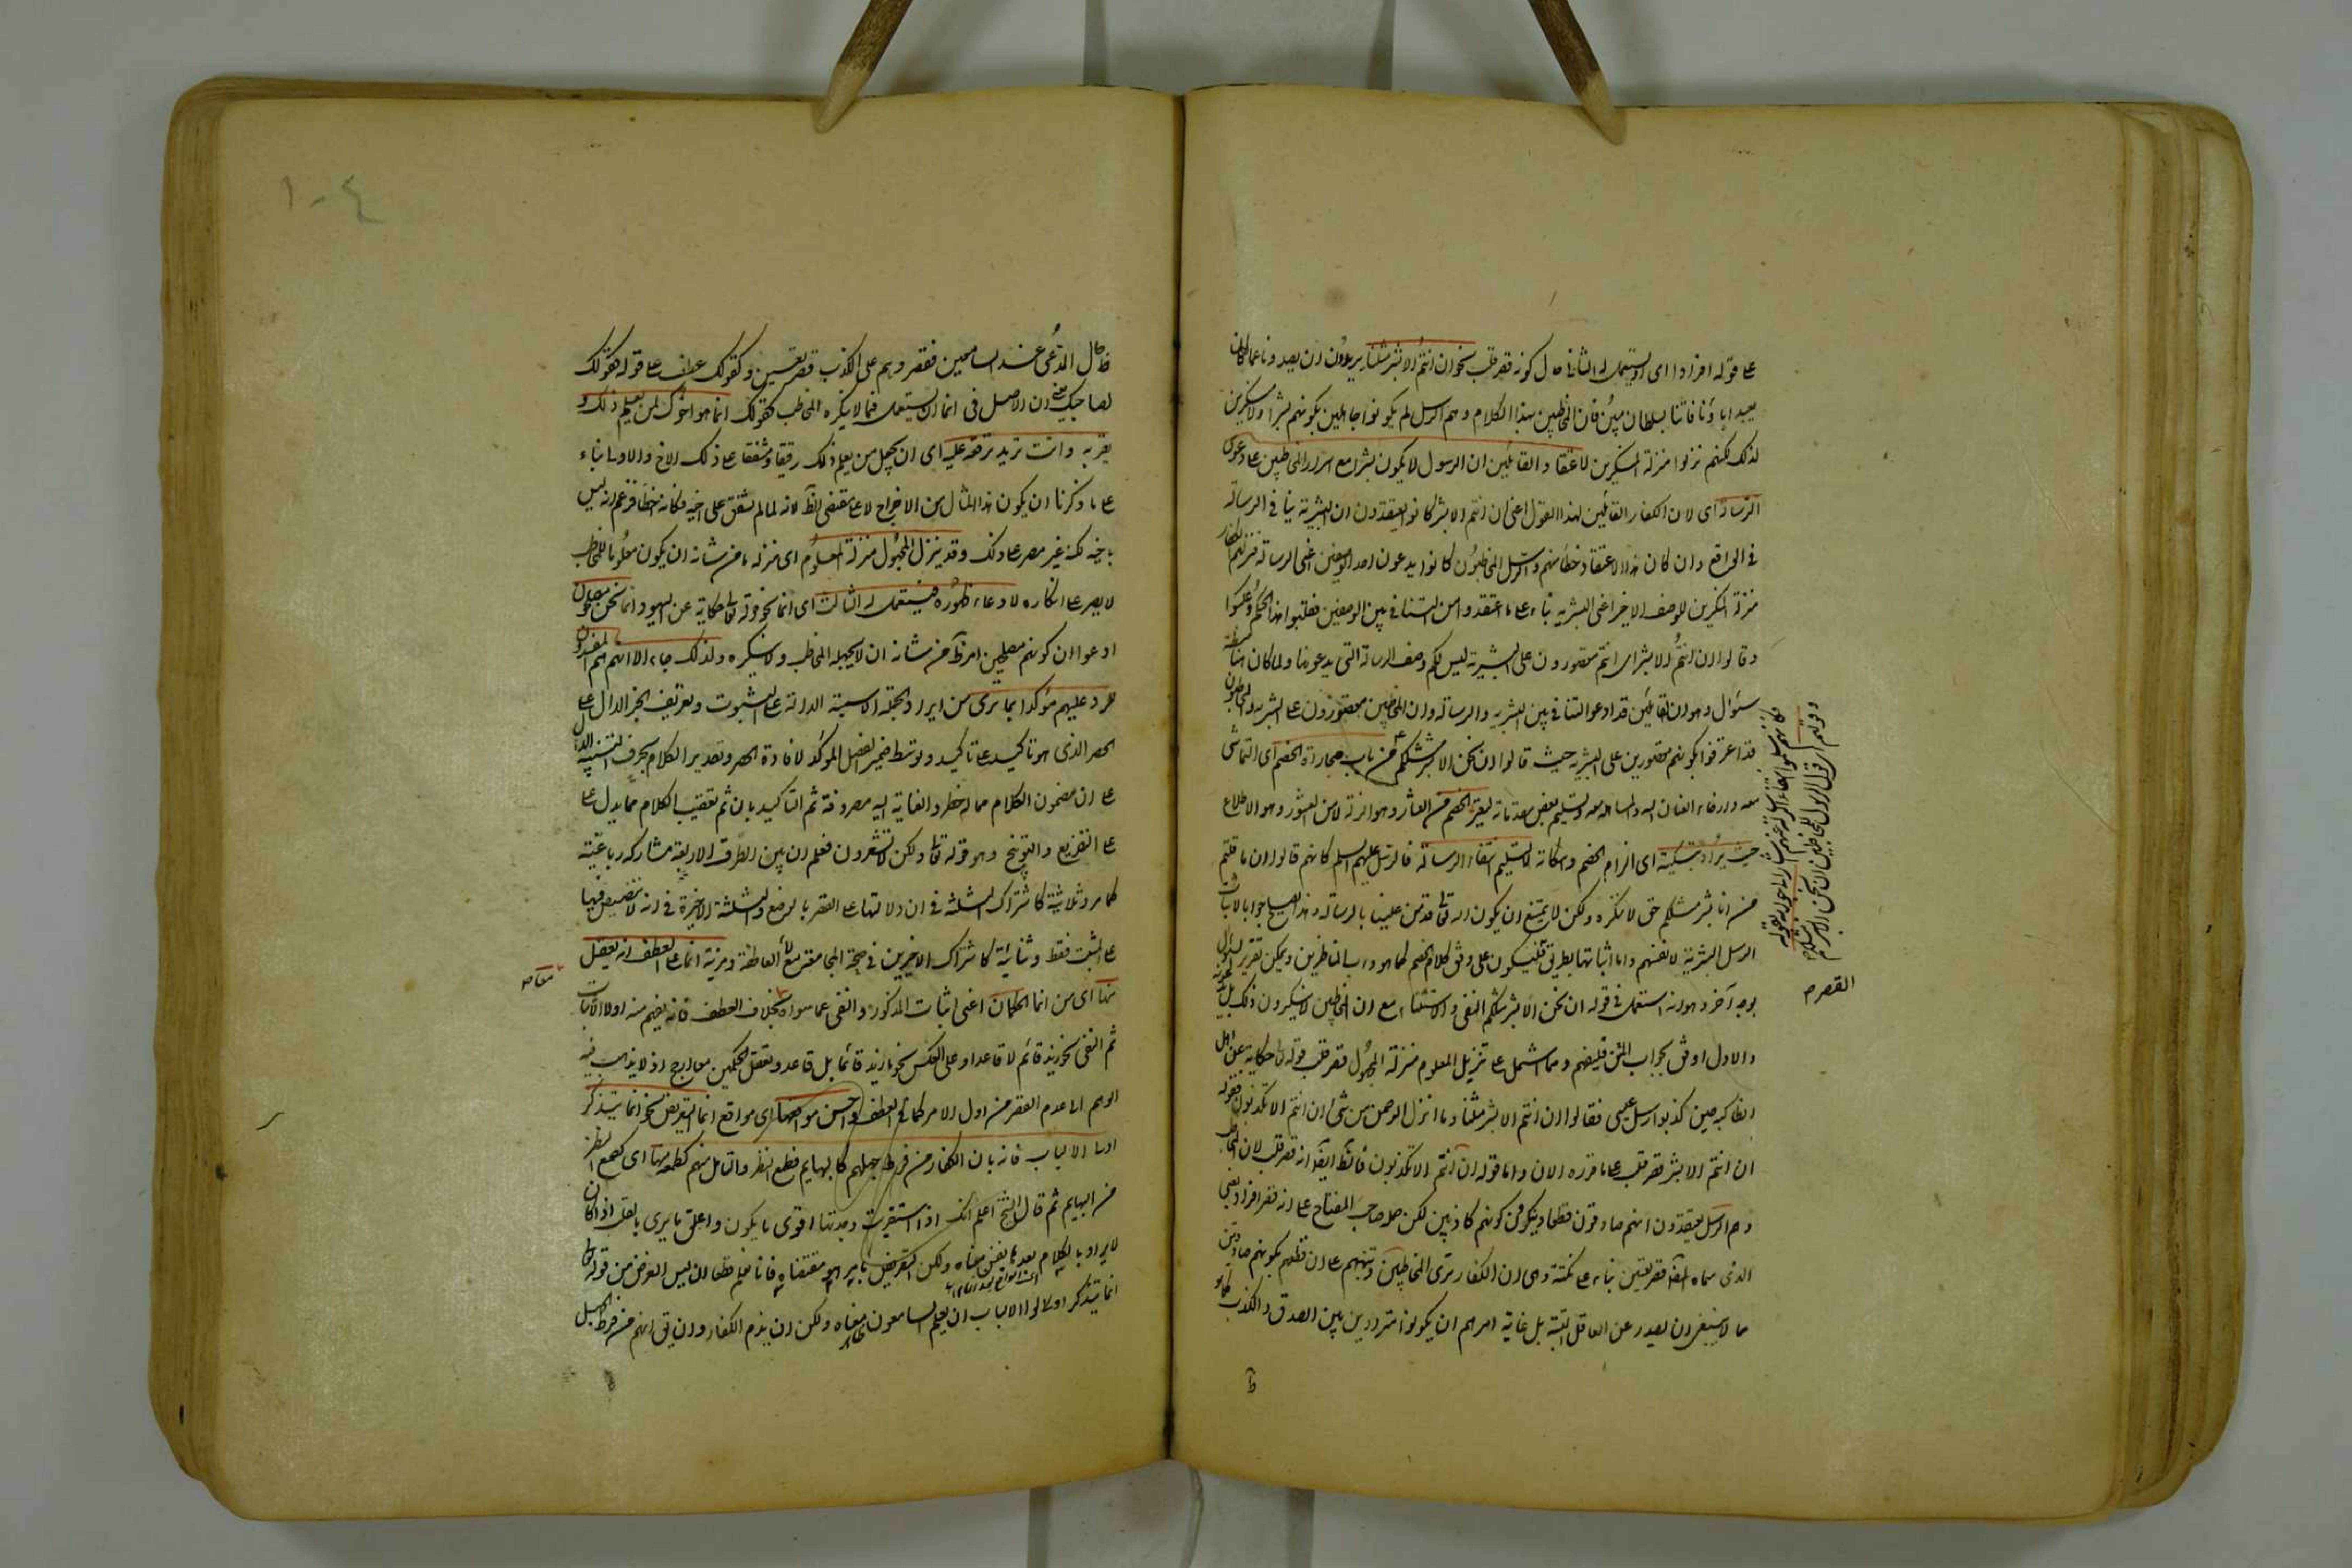 على قوله افرادا اى او يستعمل له الثانى حال كونه قصر قلب نحو ان انتم الا بشر مثلنا يريدون ان يصدونا عما كان
يعبد اباؤنا فاتنا بسلطان مبين فان المخاطبين بهذا الكلام وهم الرسل لم يكونوا جاهلين بكونهم بشرا ولا منكرين
لذلك لكنهم نزلوا منزلة المنكرين لاعتقاد القائلين ان الرسول لا يكون بشرا مع اصرار المخاطبين على دعوى
الرسالة اى لان الكفار القائلين لهذا القول اعنى ان انتم الا بشر كانوا يعتقدون ان البشرية ينافى الرسالة
فى الواقع وان كان هذا الاعتقاد خطأ منهم والرسل المخاطبون كانوا يدعون احد الوصفين اعنى الرسالة فنزلهم الكفار
منزلة المنكرين للوصف الاخر اعنى البشرية بناء على ما اعتقدوا من التنافى بين الوصفين فقلبوا هذا الحكم وعكسوا
وقالوا ان انتم الا بشر اى انتم مقصورون على البشرية ليس لكم وصف الرسالة التى يدعونها ولما كان هنا مظنة
سؤال وهو ان القائلين قد ادعوا التنافى بين البشرية والرسالة وان المخاطبين مقصورون على البشرية والمخاطبون
قد اعترفوا بكونهم مقصورين على البشرية حيث قالوا ان نحن الا بشر مثلكم من باب مجاراة الخصم اى التماشى
معه وارخاء العنان اليه والمساهلة معه بتسليم بعض مقدماته ليعثر الخصم من العثار وهو الزلة لا من العثور وهو الاطلاع
حيث يراد تبكيته اى الزام الخصم واسكاته لا لتسليم انتفاء الرسالة فالرسل عليهم السلم كانهم قالوا ان ما قلتم
من انا بشر مثلكم حق لا ننكره ولكن لا يمتنع ان يكون الله تعالى قد من علينا بالرسالة وهذا يصلح جوابا لاثبات
الرسل البشرية لانفسهم واما اثباتها بطريق القصر فليكون على وفق كلام الخصم كما هو دأب المناظرين ويمكن تقرير السؤال
بوجه آخر وهو انه استعمل فى قوله ان نحن الا بشر مثلكم النفى والاستثناء مع ان المخاطبين لا ينكرون ذلك بل
والاول اوفق بجواب المتن فليفهم ومما اشتمل على تنزيل المعلوم منزلة المجهول قصر قلب قوله تعالى حكاية عن اهل
انطاكية حين كذبوا رسل عيسى فقالوا ان انتم الا بشر مثلنا وما انزل الرحمن من شئ ان انتم الا تكذبون فقوله
ان انتم الا بشر قصر قلب على ما قرره الان واما قوله ان انتم الا تكذبون فالظ ايضا انه قصر قلب لان المخاطب
وهم الرسل يعتقدون انهم صادقون قطعا وينكرون كونهم كاذبين لكن جعله صاحب المفتاح على انه قصر افراد بمعنى
الذى سماه المصنف قصر تعيين بناء على نكتة وهى ان الكفار ترى المخاطبين وتنبههم على ان قطعهم بكونهم صادقين
مما لا ينبغى ان يصدر عن العاقل البتة بل غاية امرهم ان يكونوا مترددين بين الصدق والكذب كما هو
وقولهم اى قول الرسل المخاطبين ان نحن الا بشر مثلكم
القصر م
ظ
١٠٤
ظ حال المدعى عند السامعين فقصروهم على الكذب قصر تعيين وكقولك عطف على قوله كقولك
لصاحبك يعنى ان الاصل فى انما ان يستعمل فيما لا ينكره المخاطب كقولك انما هو اخوك لمن يعلم ذلك و
يقر به وانت تريد ترققه عليه اى ان يجعل من يعلم ذلك رقيقا مشفقا على ذلك الاخ والاولى بناء
على ما ذكرنا ان يكون هذا المثال من الاخراج لا على مقتضى الظ لانه لما لم يشفق على اخيه فكانه اخطأ فزعم انه ليس
باخيه لكنه غير مصر على ذلك وقد ينزل المجهول منزلة المعلوم اى منزلة ما من شانه ان يكون معلوما للمخاطب
لا يصر على انكاره لادعاء ظهوره فيستعمل له الثالث اى انما نحو قوله تعالى حكاية عن اليهود انما نحن مصلحون
ادعوا ان كونهم مصلحين امر ظ من شانه ان لا يجهله المخاطب ولا ينكره ولذلك جاء الا انهم هم المفسدون
للرد عليهم مؤكدا بما ترى من ايراد الجملة الاسمية الدالة على الثبوت وتعريف الخبر الدال على
الحصر الذى هو تاكيد على تاكيد وتوسط ضمير الفصل المؤكد لافادة الحصر وتصدير الكلام بحرف التنبيه الدال
على ان مضمون الكلام مما له خطر والعناية اليه مصروفة ثم التاكيد بان ثم تعقيب الكلام بما يدل على
على التقريع والتوبيخ وهو قوله تعالى ولكن لا تشعرون فعلم ان بين الطرق الاربعة مشاركة رباعية
كما مر وثلاثية كاشتراك الثلثة فى ان دلالتها على القصر بالوضع والثلثة الاخيرة فى انه لا تنصيص فيها
على المثبت فقط وثنائية كاشتراك الاخيرين فى صحة المجامعة مع لا العاطفة ومزية انما على العطف انه يعقل
منها اى من انما الحكمان اعنى اثبات المذكور والنفى عما سواه بخلاف العطف فانه يفهم منه اولا الاثبات
ثم النفى نحو زيد قائم لا قاعد او على العكس نحو ما زيد قائما بل قاعد وتعقل الحكمين معا ارجح اذ لا يذهب فيه
الوهم الى عدم القصر من اول الامر كما فى العطف واحسن مواقعها اى مواقع انما التعريض نحو انما يتذكر
اولوا الالباب فانه بان الكفار من فرط جهلهم كالبهايم فطمع النظر والتامل منهم كطمعه منها اى كطمع النظر
من البهايم ثم قال الشيخ اعلم انك اذا استقريت وجدتها اقوى ما يكون واعلق ما يرى بالقلب اذا كان
لا يراد بالكلام بعدها نفس معناه ولكن التعريض بامر هو مقتضاه فانا نعلم قطعا ان ليس الغرض من قوله تعالى
انما يتذكر اولوا الالباب ان يعلم السامعون ظاهر معناه ولكن ان يذم الكفار وان يق انهم من فرط الجهل
معا صح